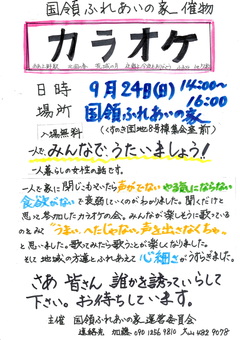 国領ふれあいの家 催物
カラオケ
日時 9月24日(日) 14:00〜16:00
場所 国領ふれあいの家
入場無料 (くすのき団地8号棟集会室前)
一人で みんなで、うたいましょう!!
一人暮らしの女性の話です。
一人で家に閉じこもっていたら声がでない やる気にならない
食欲がない と衰弱していくのがわかりました。聞くだけと
思って参加したカラオケの会。みんなが楽しそうに歌っている
のとみて "うまい、へたじゃない。声を出さなくちゃ。"
と思いました。歌ってみたら歌うことが楽しくなりました。
そして地域の方達とふれあえて 心細さがうすらぎました。
さあ 皆さん 誰かを誘っていらして
下さい。お待ちしています。
主催 国領ふれあいの家運営委員会
連絡先 加藤 090 1256 9810 大山 482 9078